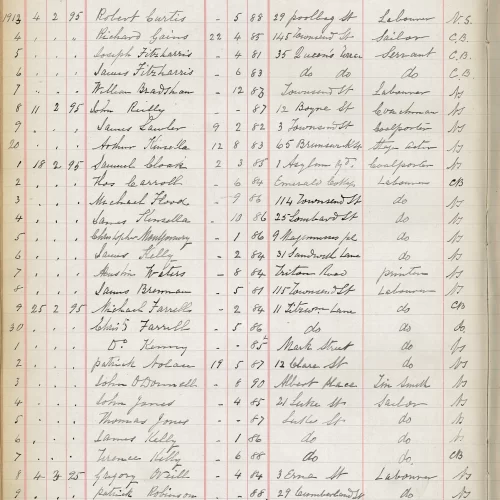 1913 4 2 95 Robert Curtis - 5 88 29 poolbeg St Labourer N.S.
4 . . " Richard Cains 22 4 85 145 Townsend St Sailor C.B.
5 . . . Joseph Fitzharris - 4 81 35 Queen's Terrace Servant C.B.
6 . . . James Fitzharris - 6 83 do do do C.B.
7 . . . William Bradshaw - 12 83 Townsend St Labourer Ns
8 11 2 95 John Reilly 87 12 Boyne St Coachman Ns
9 . . . James Lawler 9 2 82 3 Townsend St Coalporter Ns
20 . . . Arthur Kinsella 12 8 83 65 Brunswick St Ns
1 18 2 95 Samuel Cloak 2 3 85 1 Asylum Yd. Coalporter Ns
2 . . . Thos Carroll - 6 84 Emerald Cottgs Labourer CB
3 . . . Michael Flood - 9 86 114 Townsend St do Ns
4 . . . James Kinsella - 10 86 25 Lombard St do Ns
5 . . . Christopher Montgomery - 1 86 9 do Ns
6 . . . James Kelly - 2 84 31 Sandwith Lane do Ns
7 . . . Waters - 8 84 Road printer Ns
8 . . . James Brennan - 5 81 115 Townsend St Labourer Ns
9 25 2 95 Michael Farrell - 2 84 11 Fitzwm Lane do CB
30 . . . Chris Farrell - 5 86 do do do
1 . . . Do Kenny . . 85 Mark Street do Ns
2 . . . patrick Nolan 19 5 87 13 Clare St do Ns
3 . . . John O'Donnell - 8 90 Albert Place Tin Smith Ns
4 . . . John Jones - 4 85 21 Luke St Sailor Ns
5 . . . Thomas Jones - - 87 Luke St do Ns
6 . . . James Kelly - 1 86 do do Ns
7 . . . Terence Kelly - 6 88 do. do CB
8 4 3 95 Gregory - 4 84 3 Erne St Labourer Ns
9 . . . Patrick Robinson - - 88 29 Cumberland St do Ns